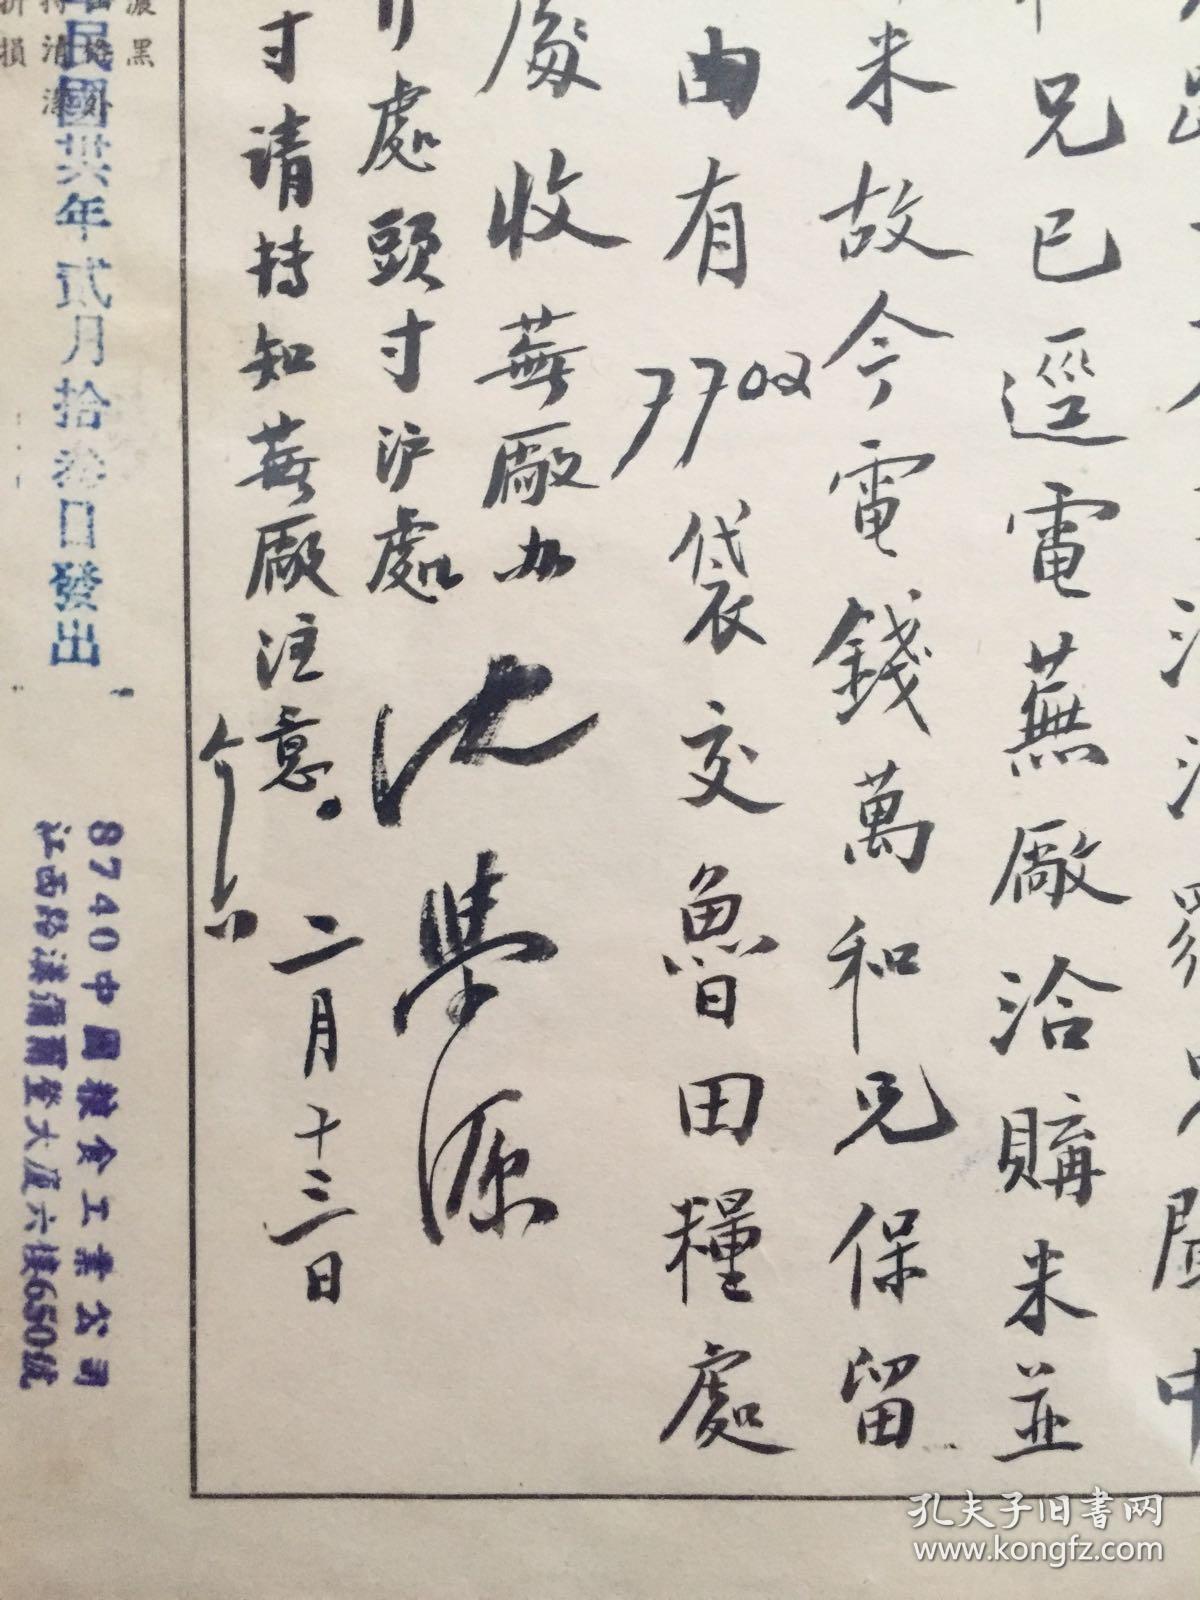 兄已逕電蕪厰洽購米並
米故今電錢萬和兄保留
由有7702袋交魯田糧處
處收蕪厰九
處頭寸沪處
寸請轉知蕪厰注意。
沈學源
二月十三日
民國卅六年貳月拾叁日發出
8740中國粮食工業公司
江西路漢彌爾登大厦六樓650號
濃黑
損
孔夫子旧书网
www.kongfz.com